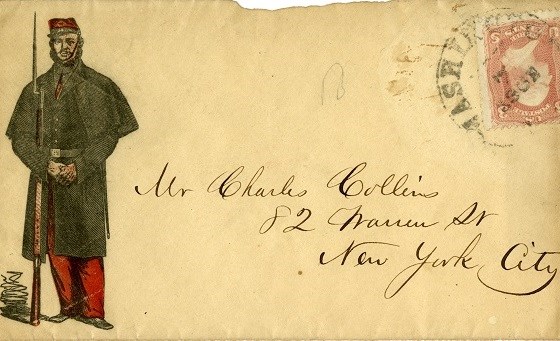 Mr Charles Collins
82 Warren St
New York City